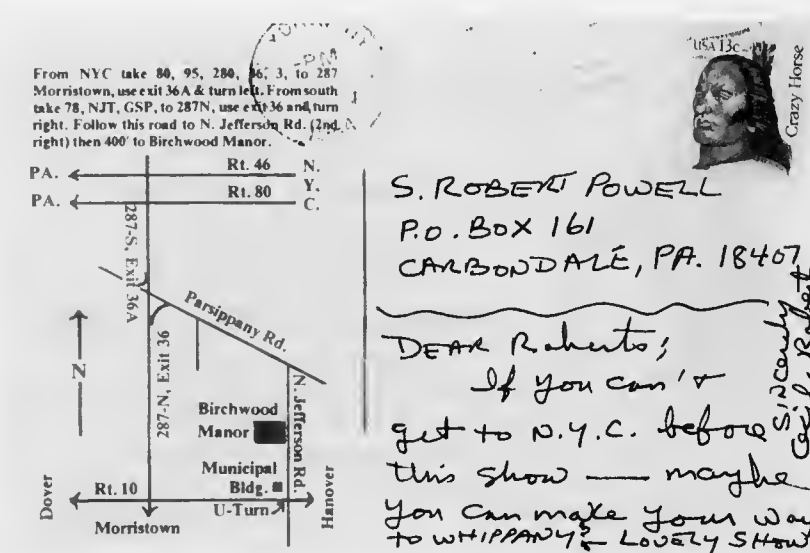 From NYC take 80, 95, 280, 46, 3, to 287
Morristown, use exit 36A & turn left. From south
take 78, NJT, GSP, to 287N, use exit 36 and turn
right. Follow this road to N. Jefferson Rd. (2nd
right) then 400' to Birchwood Manor.
PM
USA 13c
Crazy Horse
PA. Rt. 46 N.
Y.
PA. Rt. 80 C.
287-S, Exit 36A
Parsippany Rd.
N
287-N, Exit 36
Birchwood
Manor
N. Jefferson Rd.
Municipal
Bldg.
U-Turn
Dover
Rt. 10
Hanover
Morristown
S. ROBERT POWELL
P.O. BOX 161
CARBONDALE, PA. 18407
DEAR Roberts;
If you can't
get to N.Y.C. before
this show — maybe
you can make your way
TO WHIPPANY? LOVELY SHOW
Sincerely
Robert